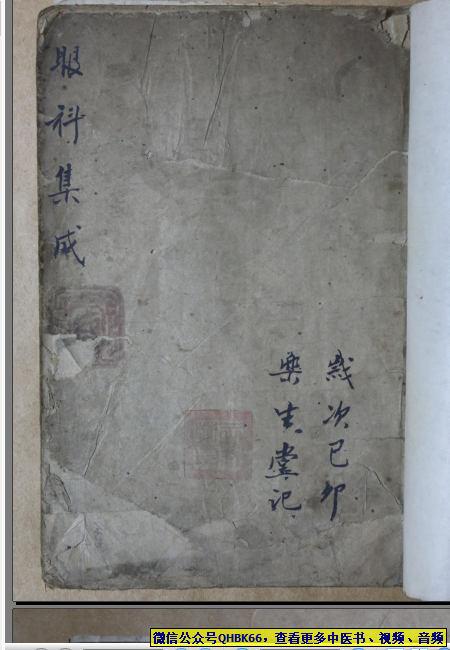 眼科集成
歲次己卯
樂生堂記
微信公众号QHBK66，查看更多中医书、视频、音频